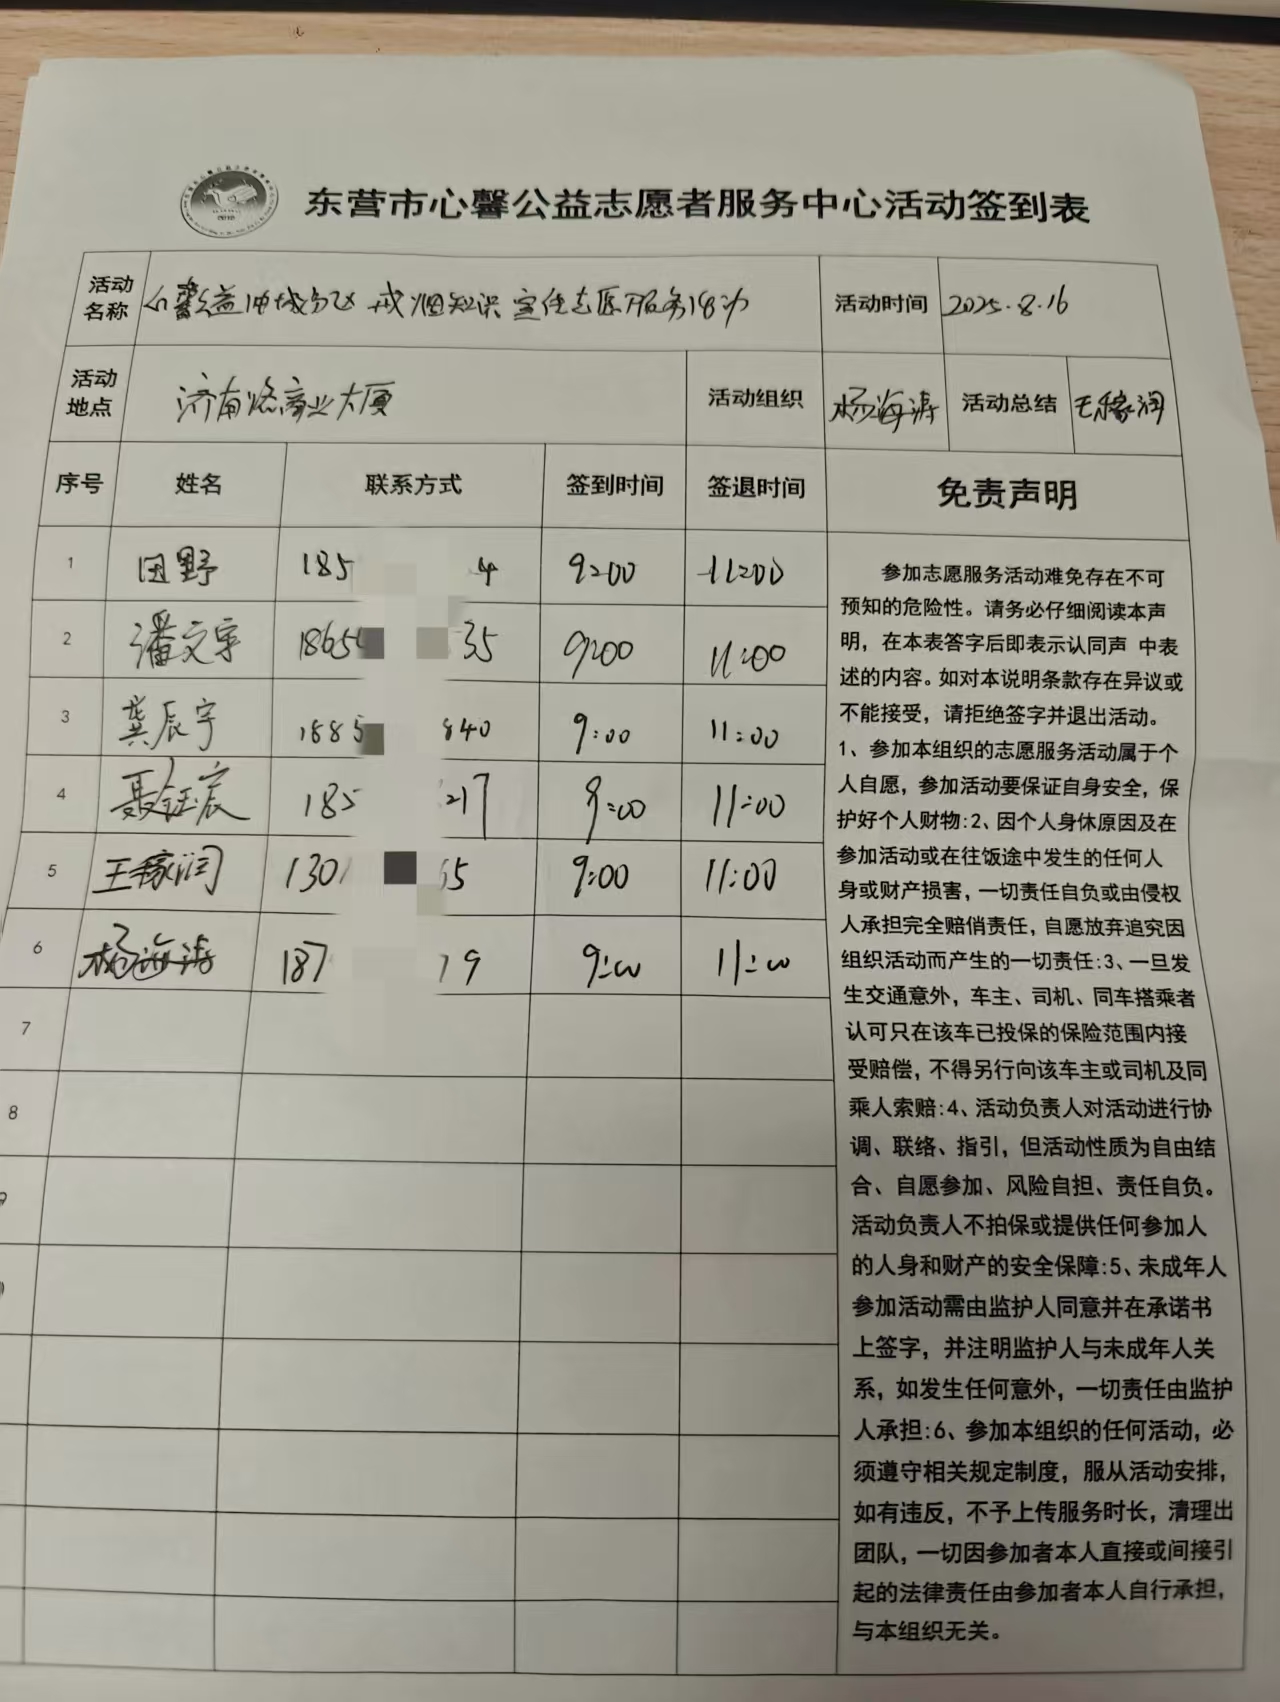 东营市心馨公益志愿者服务中心活动签到表
活动名称 心馨公益油城分队戒烟知识宣传志愿服务活动 活动时间 2025.8.16
活动地点 济南路商业大厦 活动组织 杨海涛 活动总结 王稼润
序号 姓名 联系方式 签到时间 签退时间 免责声明
1 田野 185 4 9:00 11:00
2 潘文宇 1865 35 9:00 11:00
3 龚辰宇 1885 840 9:00 11:00
4 聂钰宸 185 217 9:00 11:00
5 王稼润 130 65 9:00 11:00
6 杨海涛 187 79 9:00 11:00
7
8
参加志愿服务活动难免存在不可
预知的危险性。请务必仔细阅读本声
明，在本表答字后即表示认同声 中表
述的内容。如对本说明条款存在异议或
不能接受，请拒绝签字并退出活动。
1、参加本组织的志愿服务活动属于个
人自愿，参加活动要保证自身安全，保
护好个人财物:2、因个人身休原因及在
参加活动或在往饭途中发生的任何人
身或财产损害，一切责任自负或由侵权
人承担完全赔俏责任，自愿放弃追究因
组织活动而产生的一切责任:3、一旦发
生交通意外，车主、司机、同车搭乘者
认可只在该车已投保的保险范围内接
受赔偿，不得另行向该车主或司机及同
乘人索赔:4、活动负责人对活动进行协
调、联络、指引，但活动性质为自由结
合、自愿参加、风险自担、责任自负。
活动负责人不拍保或提供任何参加人
的人身和财产的安全保障:5、未成年人
参加活动需由监护人同意并在承诺书
上签字，并注明监护人与未成年人关
系，如发生任何意外，一切责任由监护
人承担:6、参加本组织的任何活动，必
须遵守相关规定制度，服从活动安排，
如有违反，不予上传服务时长，清理出
团队，一切因参加者本人直接或间接引
起的法律责任由参加者本人自行承担，
与本组织无关。